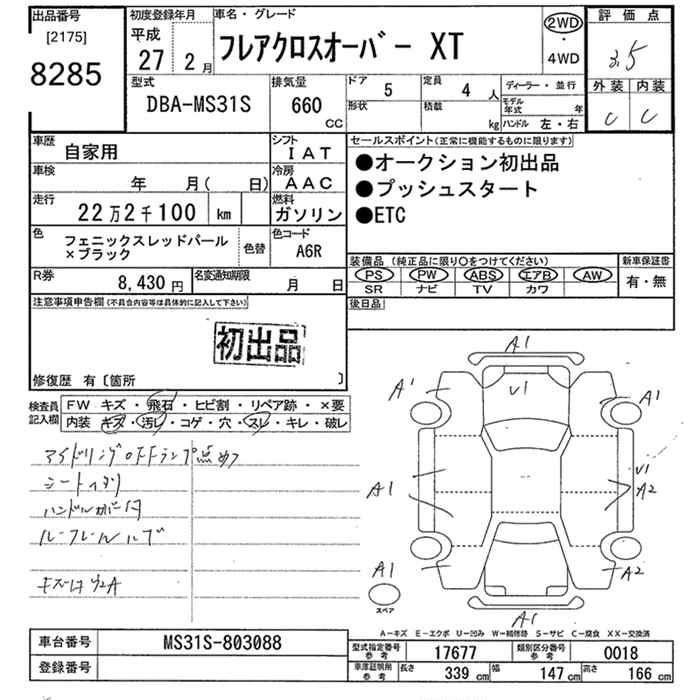 出品番号
[2175]
8285
初度登録年月
平成
27 2月
車名・グレード
フレアクロスオーバー XT
2WD
・
4WD
評価点
3.5
外装 内装
C C
型式
DBA-MS31S
排気量
660
CC
ドア
5
形状
定員
4 人
積載
kg
ディーラー・並行
モデル年式 年
ハンドル 左・右
車歴
自家用
シフト
IAT
車検
年 月( 日)
冷房
AAC
走行
22万2千100 km
燃料
ガソリン
色
フェニックスレッドパール
×ブラック
色替
色コード
A6R
R券
8,430円
名変通知期限
月 日
セールスポイント(正常に機能するものに限ります)
●オークション初出品
●プッシュスタート
●ETC
装備品 (純正品に限り○をつけてください)
PS PW ABS エアB AW
SR ナビ TV カワ
新車保証書
有・無
後日品
注意事項申告欄(不具合内容等は具体的に記入して下さい)
初出品
修復歴 有〔箇所 〕
検査員
記入欄
FW キズ・飛石・ヒビ割・リペア跡・×要
内装 キズ・汚レ・コゲ・穴・スレ・キレ・破レ
アイドリングOFFランプ点め
ハンドルカバー付
A1
V1
A1
A1
A1
V1
A2
A1
A2
スペア
A1
A-キズ E-エクボ U-凹み W-補修跡 S-サビ C-腐食 XX-交換済
車台番号
MS31S-803088
登録番号
型式指定番号
参考
17677
類別区分番号
参考
0018
車庫証明用
参考
長さ
339 cm
幅
147 cm
高さ
166 cm